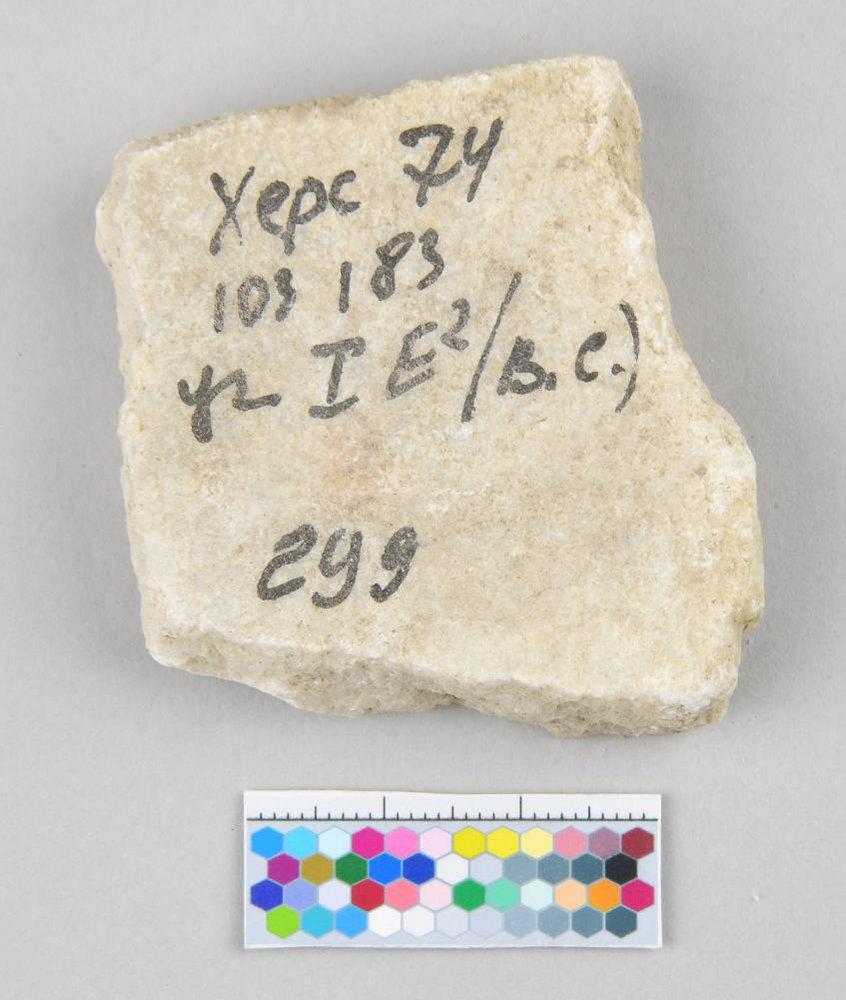 Херс 74
103 183
уг I E²/в.с.)
299